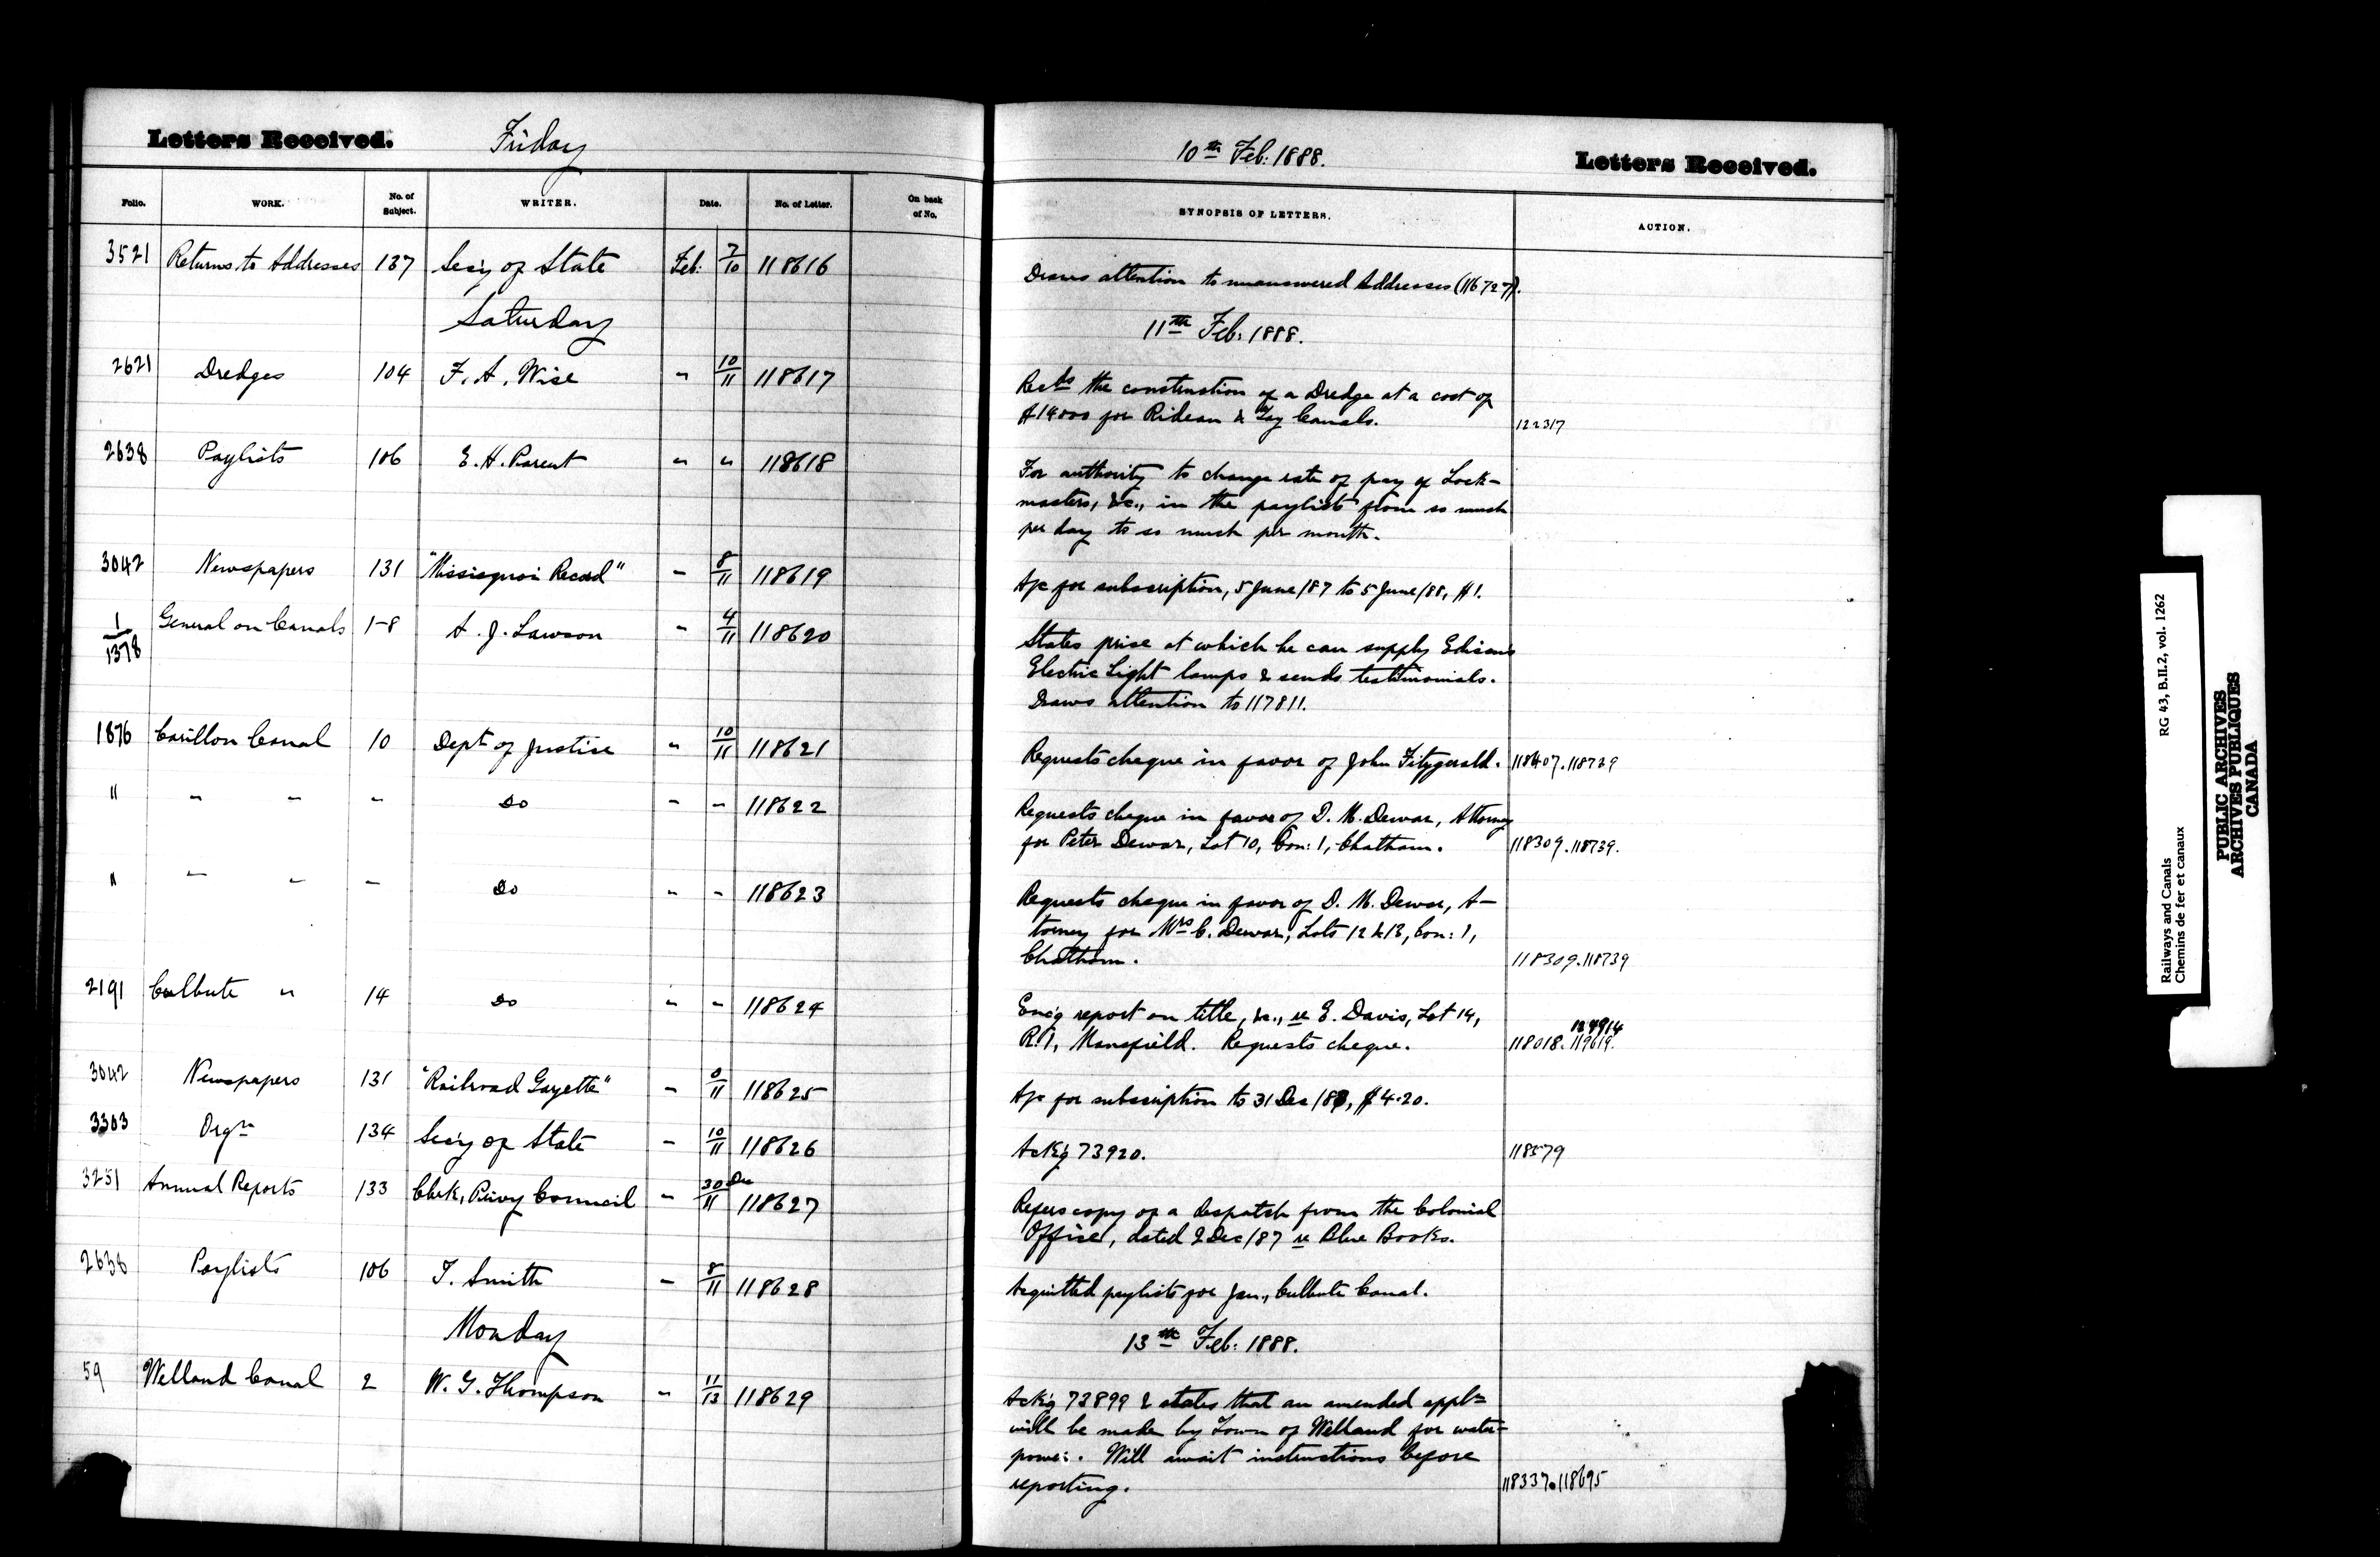 Letters Received. Friday 10th Feb: 1888. Letters Received.
Folio. WORK. No. of Subject. WRITER. Date. No. of Letter. On back of No. SYNOPSIS OF LETTERS. ACTION.
3521 Returns to Addresses 137 Sec'y of State Feb: 7/10 118616 Draws attention to unanswered Addresses (116727).
Saturday 11th Feb: 1888.
2621 Dredges 104 F. A. Wise " 10/11 118617 Recds the construction of a Dredge at a cost of
$14000 for Rideau & Tay Canals. 122317
2638 Paylists 106 E. H. Parent " " 118618 For authority to change rate of pay of Lock-
masters, &c., in the paylists from so much
per day to so much per month.
3042 Newspapers 131 "Missisquoi Record" " 8/11 118619 A/c for subscription, 5 June/87 to 5 June/88, $1.
1/1378 General on Canals 1-8 A. J. Lawson " 4/11 118620 States price at which he can supply Edisons
Electric Light lamps & sends testimonials.
Draws attention to 117811.
1876 Carillon Canal 10 Dept of Justice " 10/11 118621 Requests cheque in favor of John Fitzgerald. 118407.118729
" " " " Do " " 118622 Requests cheque in favor of D. M. Dewar, Attorney
for Peter Dewar, Lot 10, Con: 1, Chatham. 118309.118739.
" " " " Do " " 118623 Requests cheque in favor of D. M. Dewar, At-
torney for Mrs C. Dewar, Lots 12 & 13, Con: 1,
Chatham. 118309.118739
2191 Culbute " 14 Do " " 118624 Enc'g report on title, &c., re E. Davis, Lot 14,
124914
R. 1, Mansfield. Requests cheque. 118018. 119619.
3042 Newspapers 131 "Railroad Gazette" " 0/11 118625 A/c for subscription to 31 Dec/88, $4.20.
3303 Orgn 134 Sec'y of State " 10/11 118626 Ack'g 73920. 118579
3251 Annual Reports 133 Clerk, Privy Council " 30 Dec/11 118627 Refers copy of a despatch from the Colonial
Office, dated 2 Dec/87 re Blue Books.
2638 Paylists 106 T. Smith " 8/11 118628 Acquitted paylists for Jan., Culbute Canal.
Monday 13th Feb: 1888.
59 Welland Canal 2 W. G. Thompson " 11/13 118629 Ack'g 73899 & states that an amended appln
will be made by Town of Welland for water-
power. Will await instructions before
reporting. 118337.118695
Railways and Canals RG 43, B.II.2, vol. 1262
Chemins de fer et canaux
PUBLIC ARCHIVES
ARCHIVES PUBLIQUES
CANADA